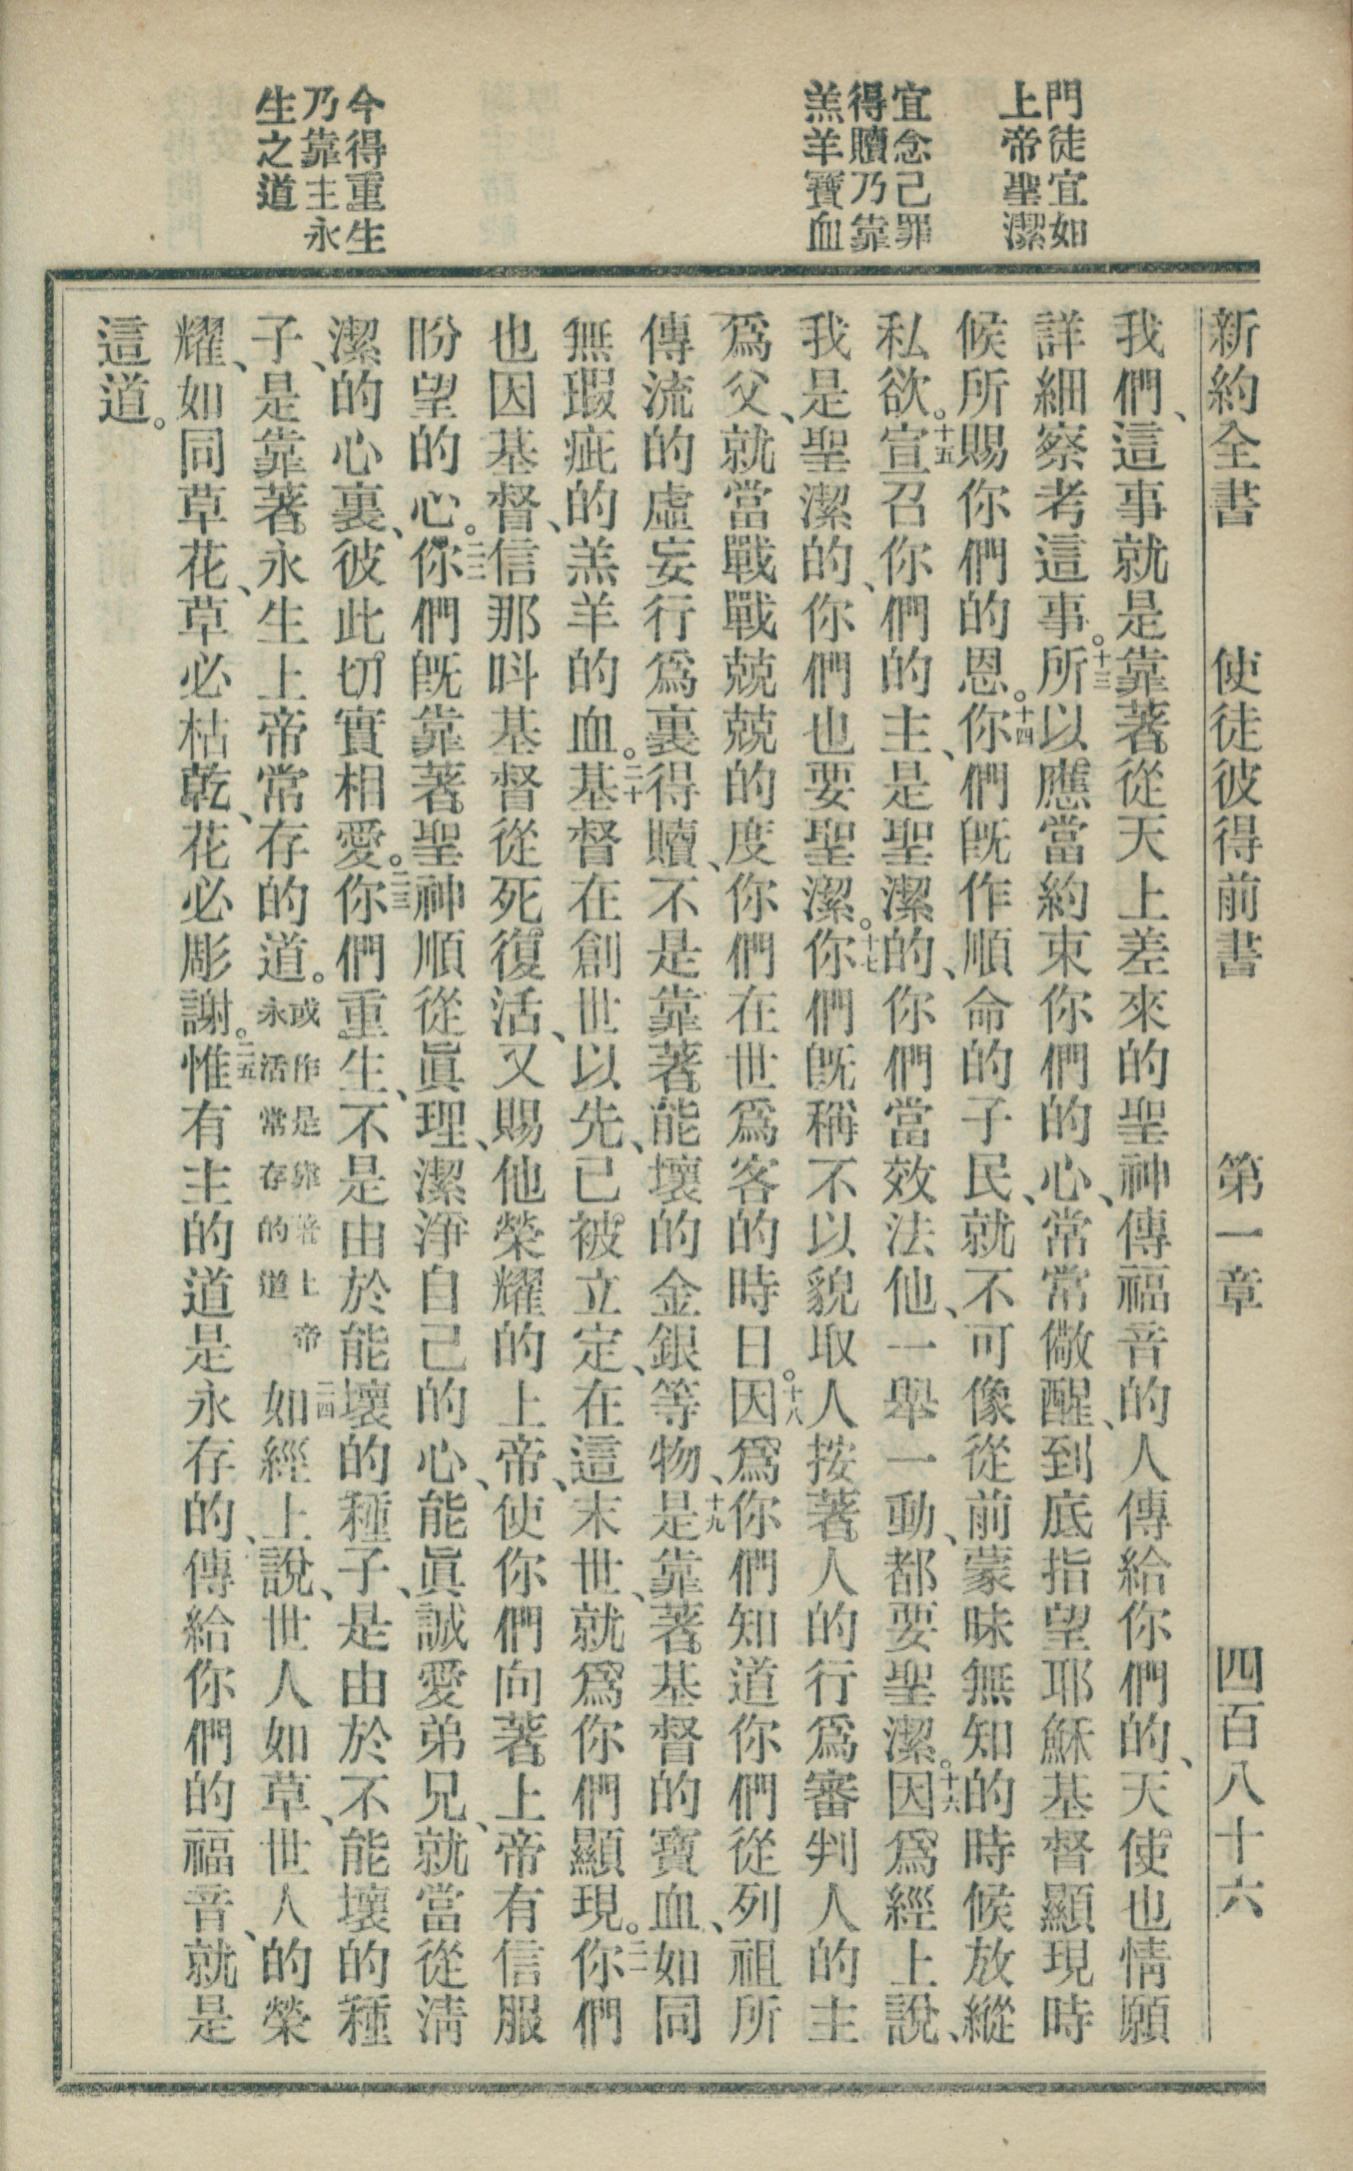 門徒宜如
上帝聖潔
宜念己罪
得贖乃靠
羔羊寶血
今得重生
乃靠主永
生之道
新約全書　使徒彼得前書　第一章　四百八十六
我們、這事就是靠著從天上差來的聖神傳福音的人傳給你們的、天使也情願
詳細察考這事。十三所以應當約束你們的心、常常儆醒、到底指望耶穌基督顯現時
候所賜你們的恩。十四你們旣作順命的子民、就不可像從前蒙昧無知的時候放縱
私欲。十五宣召你們的主、是聖潔的、你們當效法他、一舉一動、都要聖潔。十六因爲經上說、
我是聖潔的、你們也要聖潔。十七你們旣稱不以貌取人按著人的行爲審判人的主
爲父、就當戰戰兢兢的度你們在世爲客的時日。十八因爲你們知道你們從列祖所
傳流的虛妄行爲裏得贖、不是靠著能壞的金銀等物、十九是靠著基督的寶血、如同
無瑕疵的羔羊的血。二十基督在創世以先、已被立定、在這末世、就爲你們顯現。二一你們
也因基督、信那呌基督從死復活、又賜他榮耀的上帝、使你們向著上帝有信服
盼望的心。二二你們旣靠著聖神順從眞理、潔淨自己的心、能眞誠愛弟兄、就當從淸
潔的心裏、彼此切實相愛。二三你們重生、不是由於能壞的種子、是由於不能壞的種
子、是靠著永生上帝常存的道。或作是靠著上帝永活常存的道二四如經上說、世人如草、世人的榮
耀、如同草花、草必枯乾、花必彫謝。二五惟有主的道是永存的、傳給你們的福音、就是
這道。